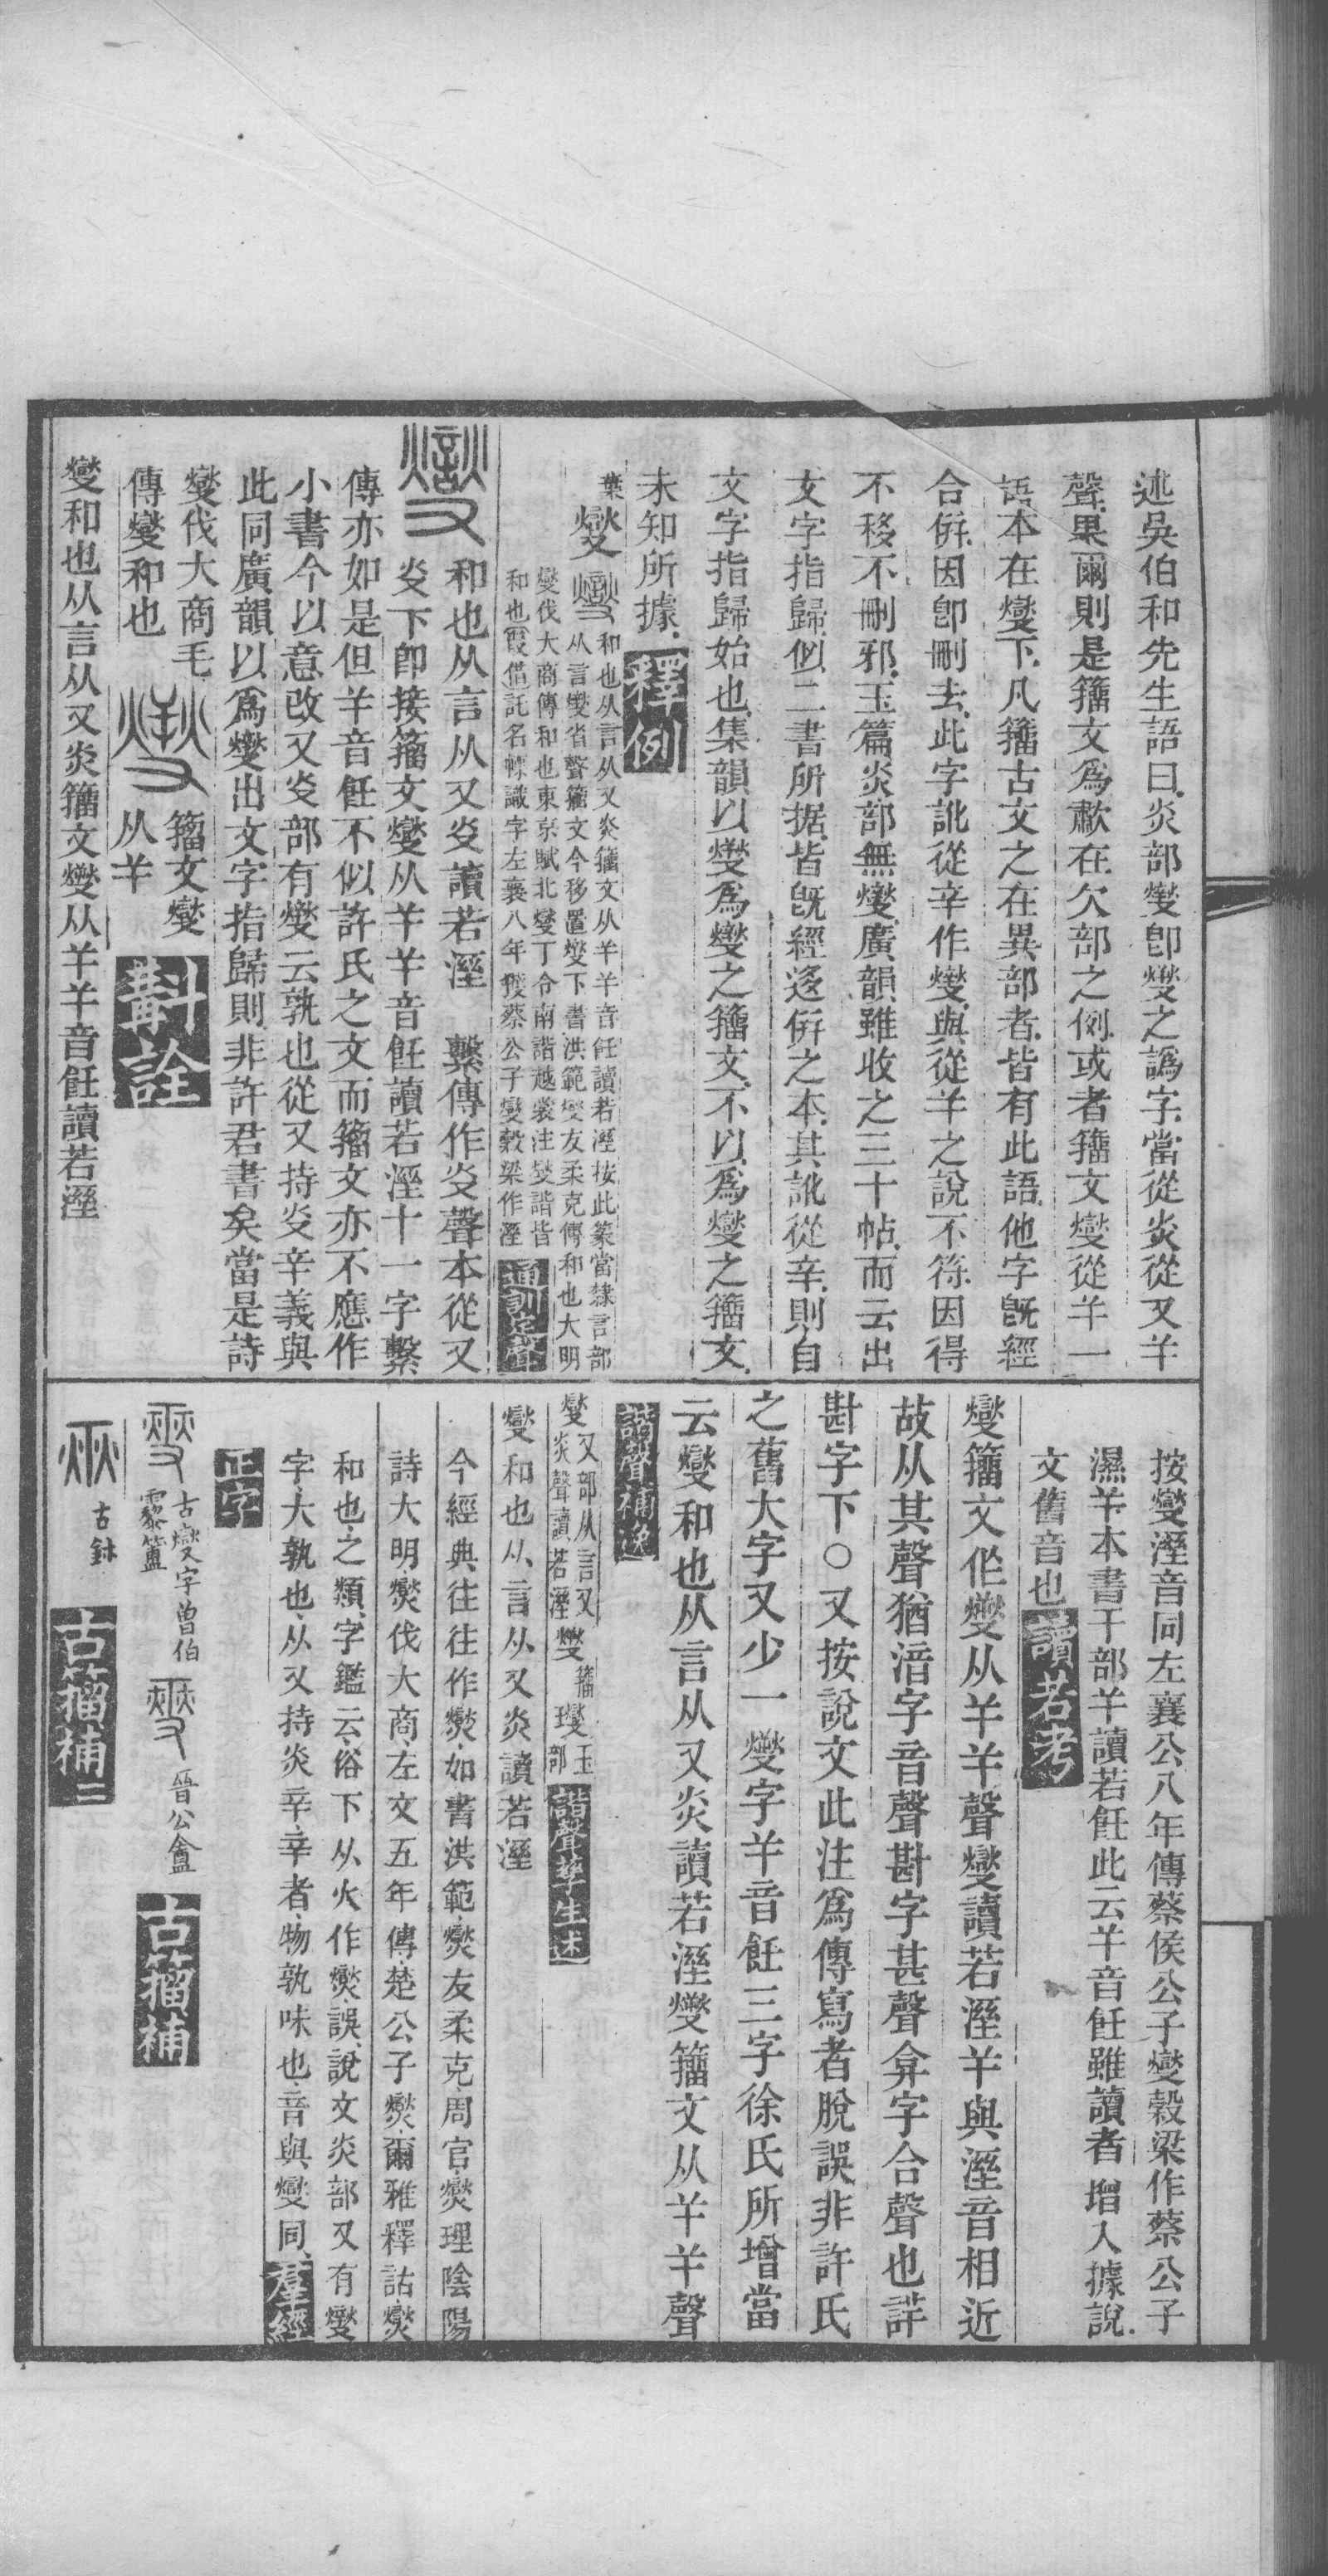 述吳伯和先生語曰炎部燮卽燮之譌字當從炎從又羊
聲果爾則是籒文爲歗在欠部之例或者籒文燮從羊一
語本在燮下凡籒古文之在異部者皆有此語他字旣經
合倂因卽刪去此字訛從辛作燮與從羊之說不符因得
不移不刪邪玉篇炎部無燮廣韻雖收之三十帖而云出
文字指歸似二書所据皆旣經迻倂之本其訛從辛則自
文字指歸始也集韻以燮爲燮之籒文不以爲燮之籒文
未知所據釋例
葉燮
和也从言从又炎籒文从羊羊音飪讀若溼按此篆當隸言部
从言燮省聲籒文今移置燮下書洪範燮友柔克傳和也大明
燮伐大商傳和也東京賦北燮丁令南諧越裳注燮諧皆
和也叚借託名幖識字左襄八年獲蔡公子燮穀梁作溼通訓定聲
和也从言从又炎讀若溼 繫傳作炎聲本從又
炎下卽接籒文燮从羊羊音飪讀若溼十一字繫
傳亦如是但羊音飪不似許氏之文而籒文亦不應作
小書今以意改又炎部有燮云孰也從又持炎辛義與
此同廣韻以爲燮出文字指歸則非許君書矣當是詩
燮伐大商毛
傳燮和也
籒文燮
从羊
斠詮
燮和也从言从又炎籒文燮从羊羊音飪讀若溼
按燮溼音同左襄公八年傳蔡侯公子燮穀梁作蔡公子
濕羊本書干部羊讀若飪此云羊音飪雖讀者增入據說
文舊音也讀若考
燮籒文作燮从羊羊聲燮讀若溼羊與溼音相近
故从其聲猶湆字音聲斟字甚聲弇字合聲也詳
斟字下○又按說文此注爲傳寫者脫誤非許氏
之舊大字又少一燮字羊音飪三字徐氏所增當
云燮和也从言从又炎讀若溼燮籒文从羊羊聲
諧聲補逸
燮
又部从言又
炎聲讀若溼
燮籒
燮玉部
諧聲孳生述
燮和也从言从又炎讀若溼
今經典往往作爕如書洪範爕友柔克周官爕理陰陽
詩大明爕伐大商左文五年傳楚公子爕爾雅釋詁爕
和也之類字鑑云俗下从火作爕誤說文炎部又有燮
字大孰也从又持炎辛辛者物孰味也音與燮同羣經
正字
古燮字曾伯
霥簠
晉公盦
古籀補
古鉥
古籀補二